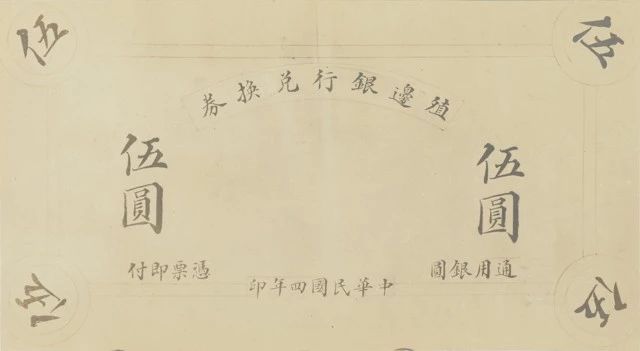 伍
伍
殖邊銀行兌換券
伍圓
伍圓
通用銀圓
憑票即付
中華民國四年印
伍
伍